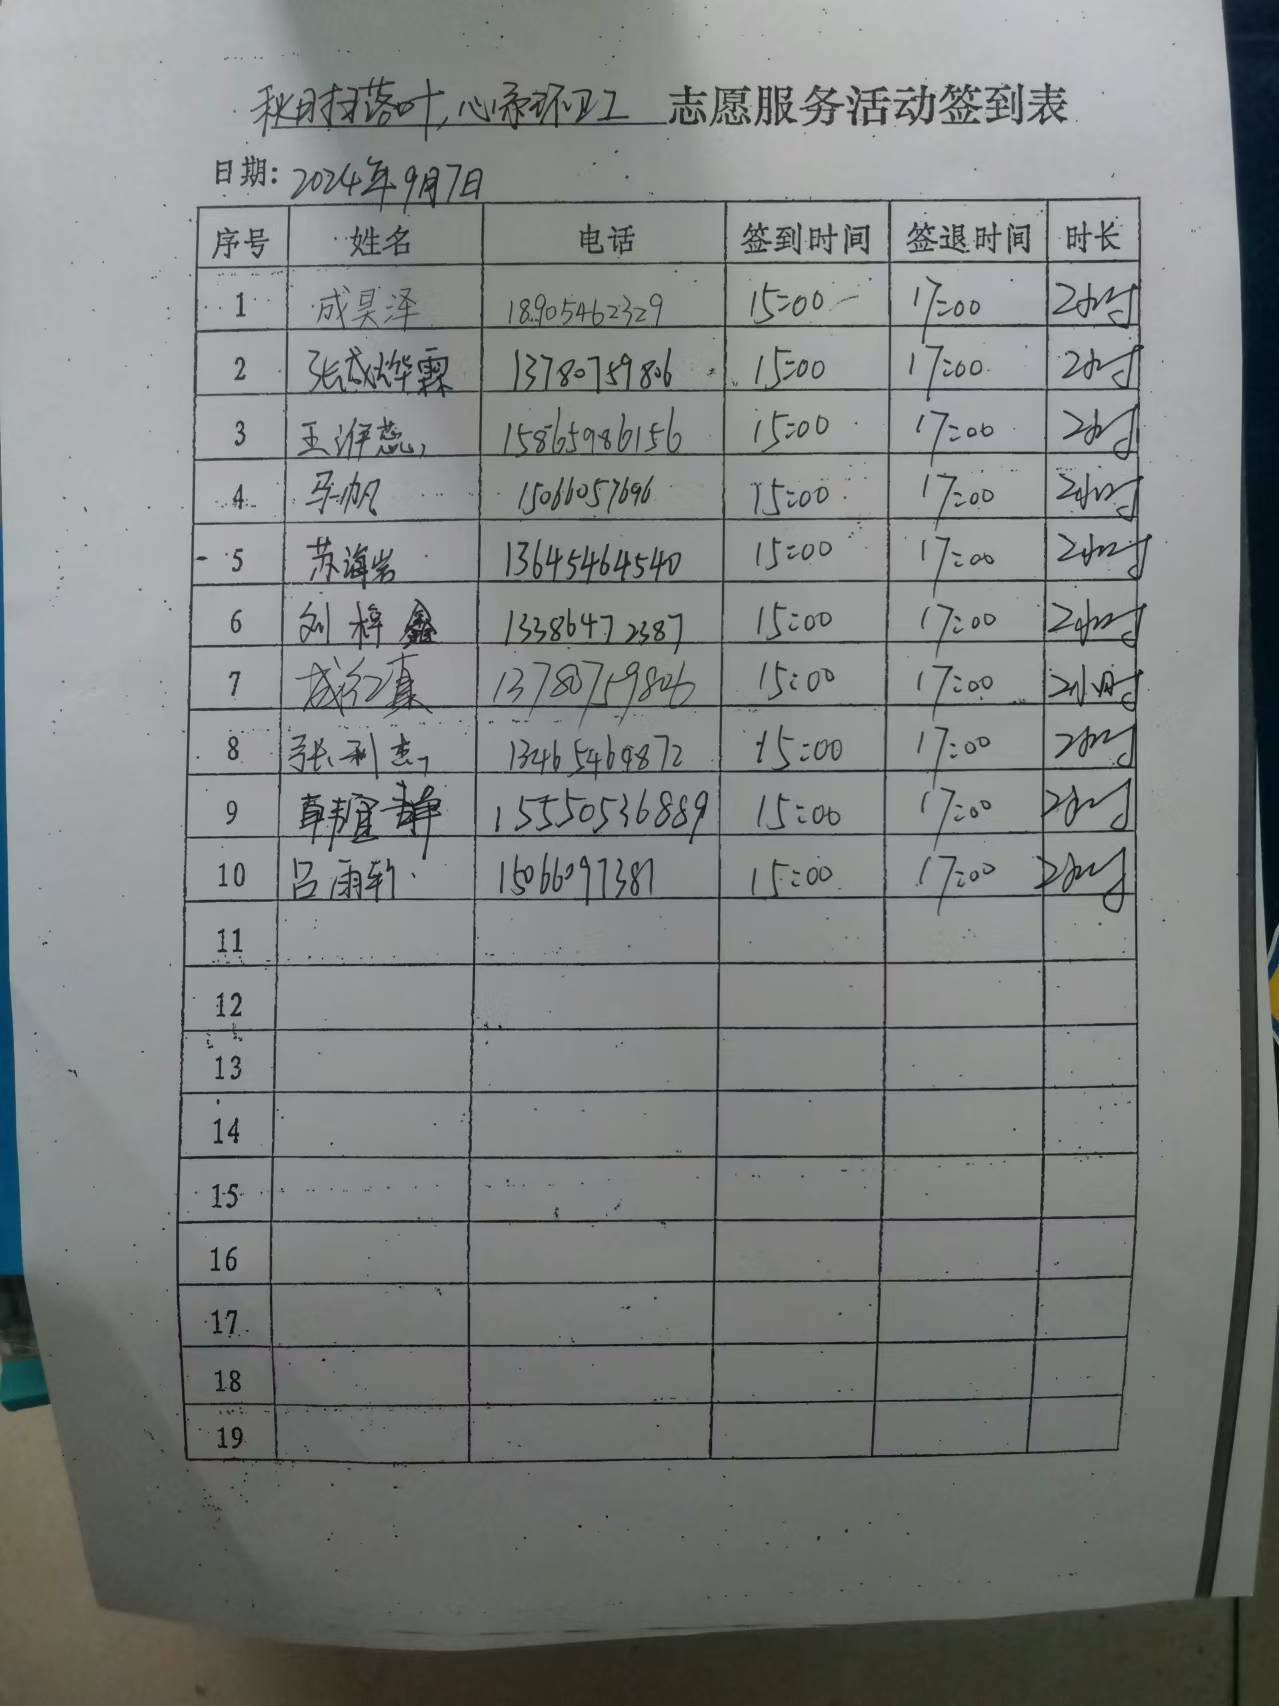 秋时扫落叶,心系环卫工 志愿服务活动签到表
日期: 2024年9月7日
序号 姓名 电话 签到时间 签退时间 时长
1 成昊泽 18905462329 15:00 17:00 2小时
2 张成烨霖 13780759806 15:00 17:00 2小时
3 王淮蕊 15865986156 15:00 17:00 2小时
4 马帆 15066057696 15:00 17:00 2小时
5 苏海岩 13645464540 15:00 17:00 2小时
6 刘梓鑫 13386472387 15:00 17:00 2小时
7 成红真 13780759806 15:00 17:00 2小时
8 张利杰 13465469872 15:00 17:00 2小时
9 15550536889 15:00 17:00 2小时
10 吕雨轩 15066097387 15:00 17:00 2小时
11
12
13
14
15
16
17
18
19